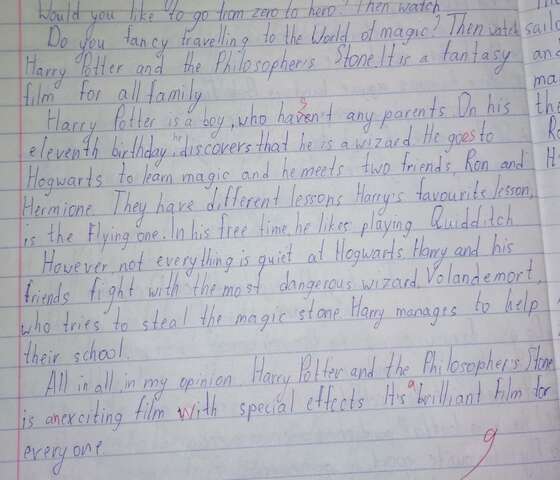 Would you like to go from zero to hero? Then watch
Do you fancy travelling to the World of magic? Then watch
Harry Potter and the Philosopher's Stone. It is a fantasy
film for all family
Harry Potter is a boy, who haven't any parents. On his
s
eleventh birthday he discovers that he is a wizard. He goes to
Hogwarts to learn magic and he meets two friends, Ron and
Hermione. They have different lessons Harry's favourite lesson,
is the Flying one. In his free time, he likes playing Quidditch
However not everything is quiet at Hogwarts. Harry and his
friends fight with the most dangerous wizard, Volandemort,
who tries to steal the magic stone Harry manages to help
their school.
All in all, in my opinion Harry Potter and the Philosopher's Stone
is an exciting film with special effects It's a brilliant film for
everyone
9
sail
and
ma
the
R
H